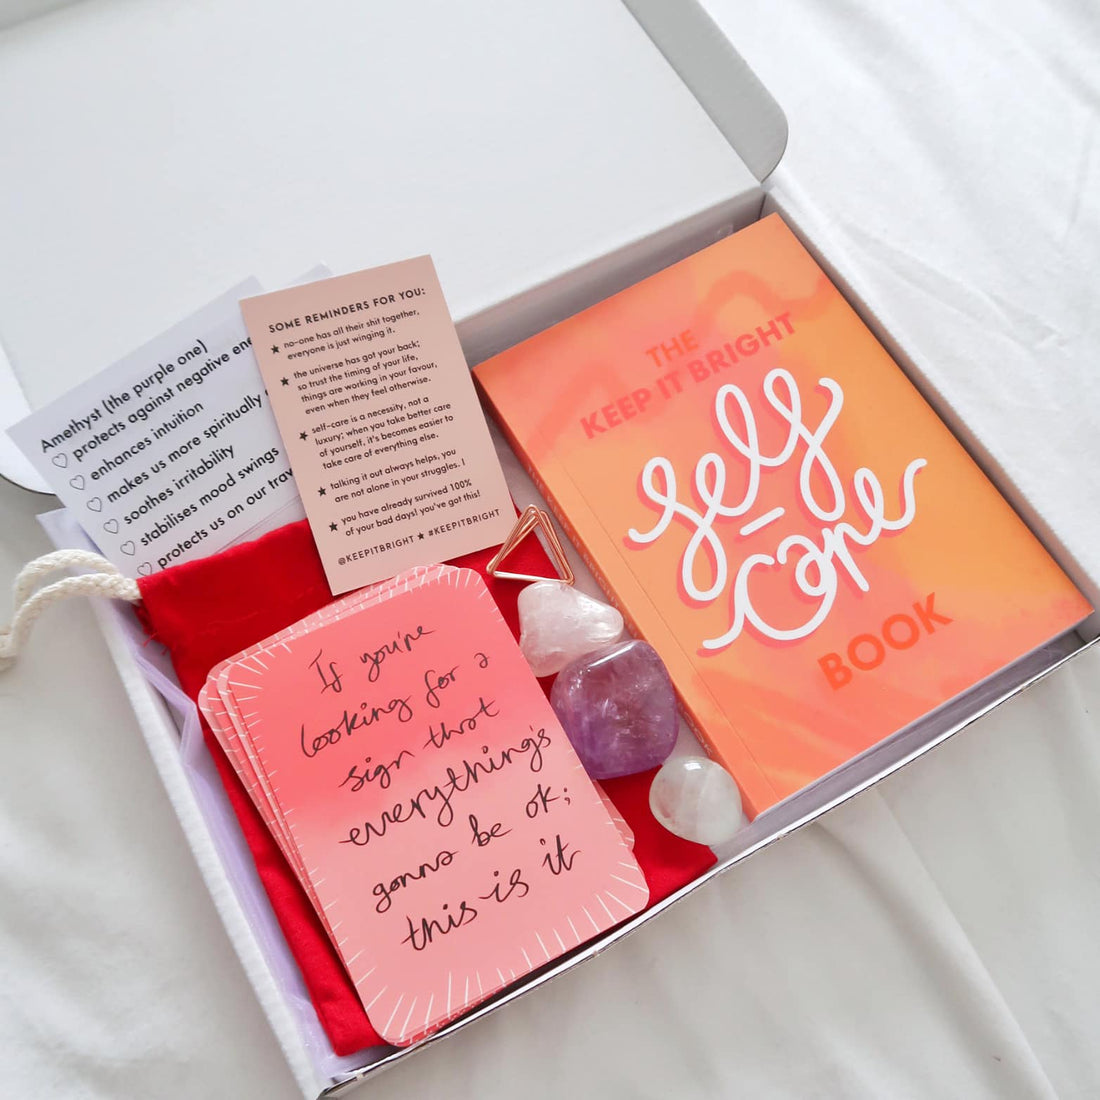 Amethyst (the purple one)
protects against negative ene
enhances intuition
makes us more spiritually
soothes irritability
stabilises mood swings
protects us on our trav
SOME REMINDERS FOR YOU:
no-one has all their shit together,
everyone is just winging it.
the universe has got your back;
so trust the timing of your life,
things are working in your favour,
even when they feel otherwise.
self-care is a necessity, not a
luxury; when you take better care
of yourself, it's becomes easier to
take care of everything else.
talking it out always helps, you
are not alone in your struggles. I
you have already survived 100%
of your bad days! you've got this!
@KEEPITBRIGHT ★ #KEEPITBRIGHT
If you're
looking for a
sign that
everything's
gonna be ok;
this is it
THE
KEEP IT BRIGHT
self
-
care
BOOK